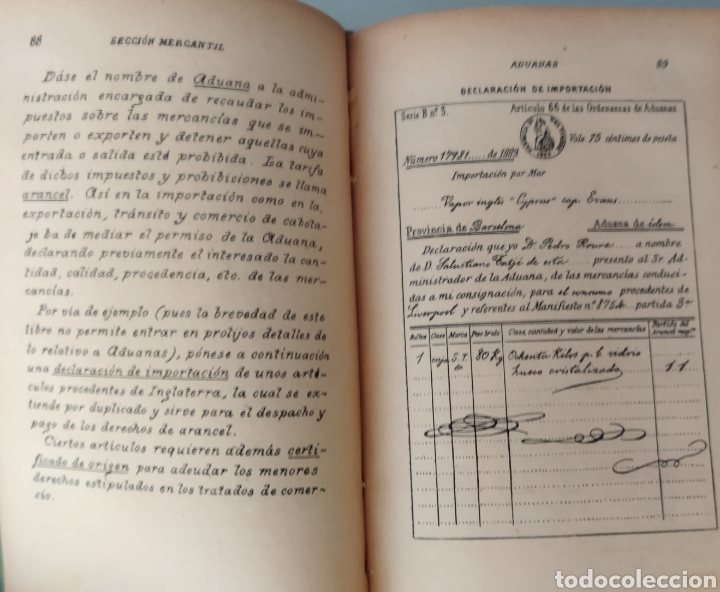 68 SECCIÓN MERCANTIL
Dáse el nombre de Aduana a la admi-
nistración encargada de recaudar los im-
puestos sobre las mercancías que se im-
porten o exporten y detener aquellas cuya
entrada o salida esté prohibida. La tarifa
de dichos impuestos y prohibiciones se llama
arancel. Así en la importación como en la
exportación, tránsito y comercio de cabota-
je ha de mediar el permiso de la Aduana,
declarando previamente el interesado la can-
tidad, calidad, procedencia, etc. de las mer-
cancías.
Por vía de ejemplo (pues la brevedad de este
libro no permite entrar en prolijos detalles de
lo relativo a Aduanas), pónese a continuación
una declaración de importación de unos artí-
culos procedentes de Inglaterra, la cual se ex-
tiende por duplicado y sirve para el despacho y
pago de los derechos de arancel.
Ciertos artículos requieren además certi-
ficado de origen para adeudar los menores
derechos estipulados en los tratados de comer-
cio.
ADUANAS 69
DECLARACIÓN DE IMPORTACIÓN
Serie B nº 5. Artículo 66 de las Ordenanzas de Aduanas
Vale 75 céntimos de peseta
Número 17981 ..... de 1889
Importación por Mar
Vapor inglés "Cyprus" cap. Evans
Provincia de Barcelona Aduana de idem
Declaración que yo D. Pedro ..... a nombre
de D. Salustiano de esta ..... presento al Sr. Ad-
ministrador de la Aduana, de las mercancías conduci-
das a mi consignación, para el consumo procedentes de
Liverpool y referentes al Manifiesto nº 875A partida 3ª
Bultos Clase Marca Peso bruto Clase, cantidad y valor de las mercancías Partida del arancel
1 caja S. T. 80 Kg Ochenta Kilos p. b. vidrio 11
hueco cristalizado
todocoleccion